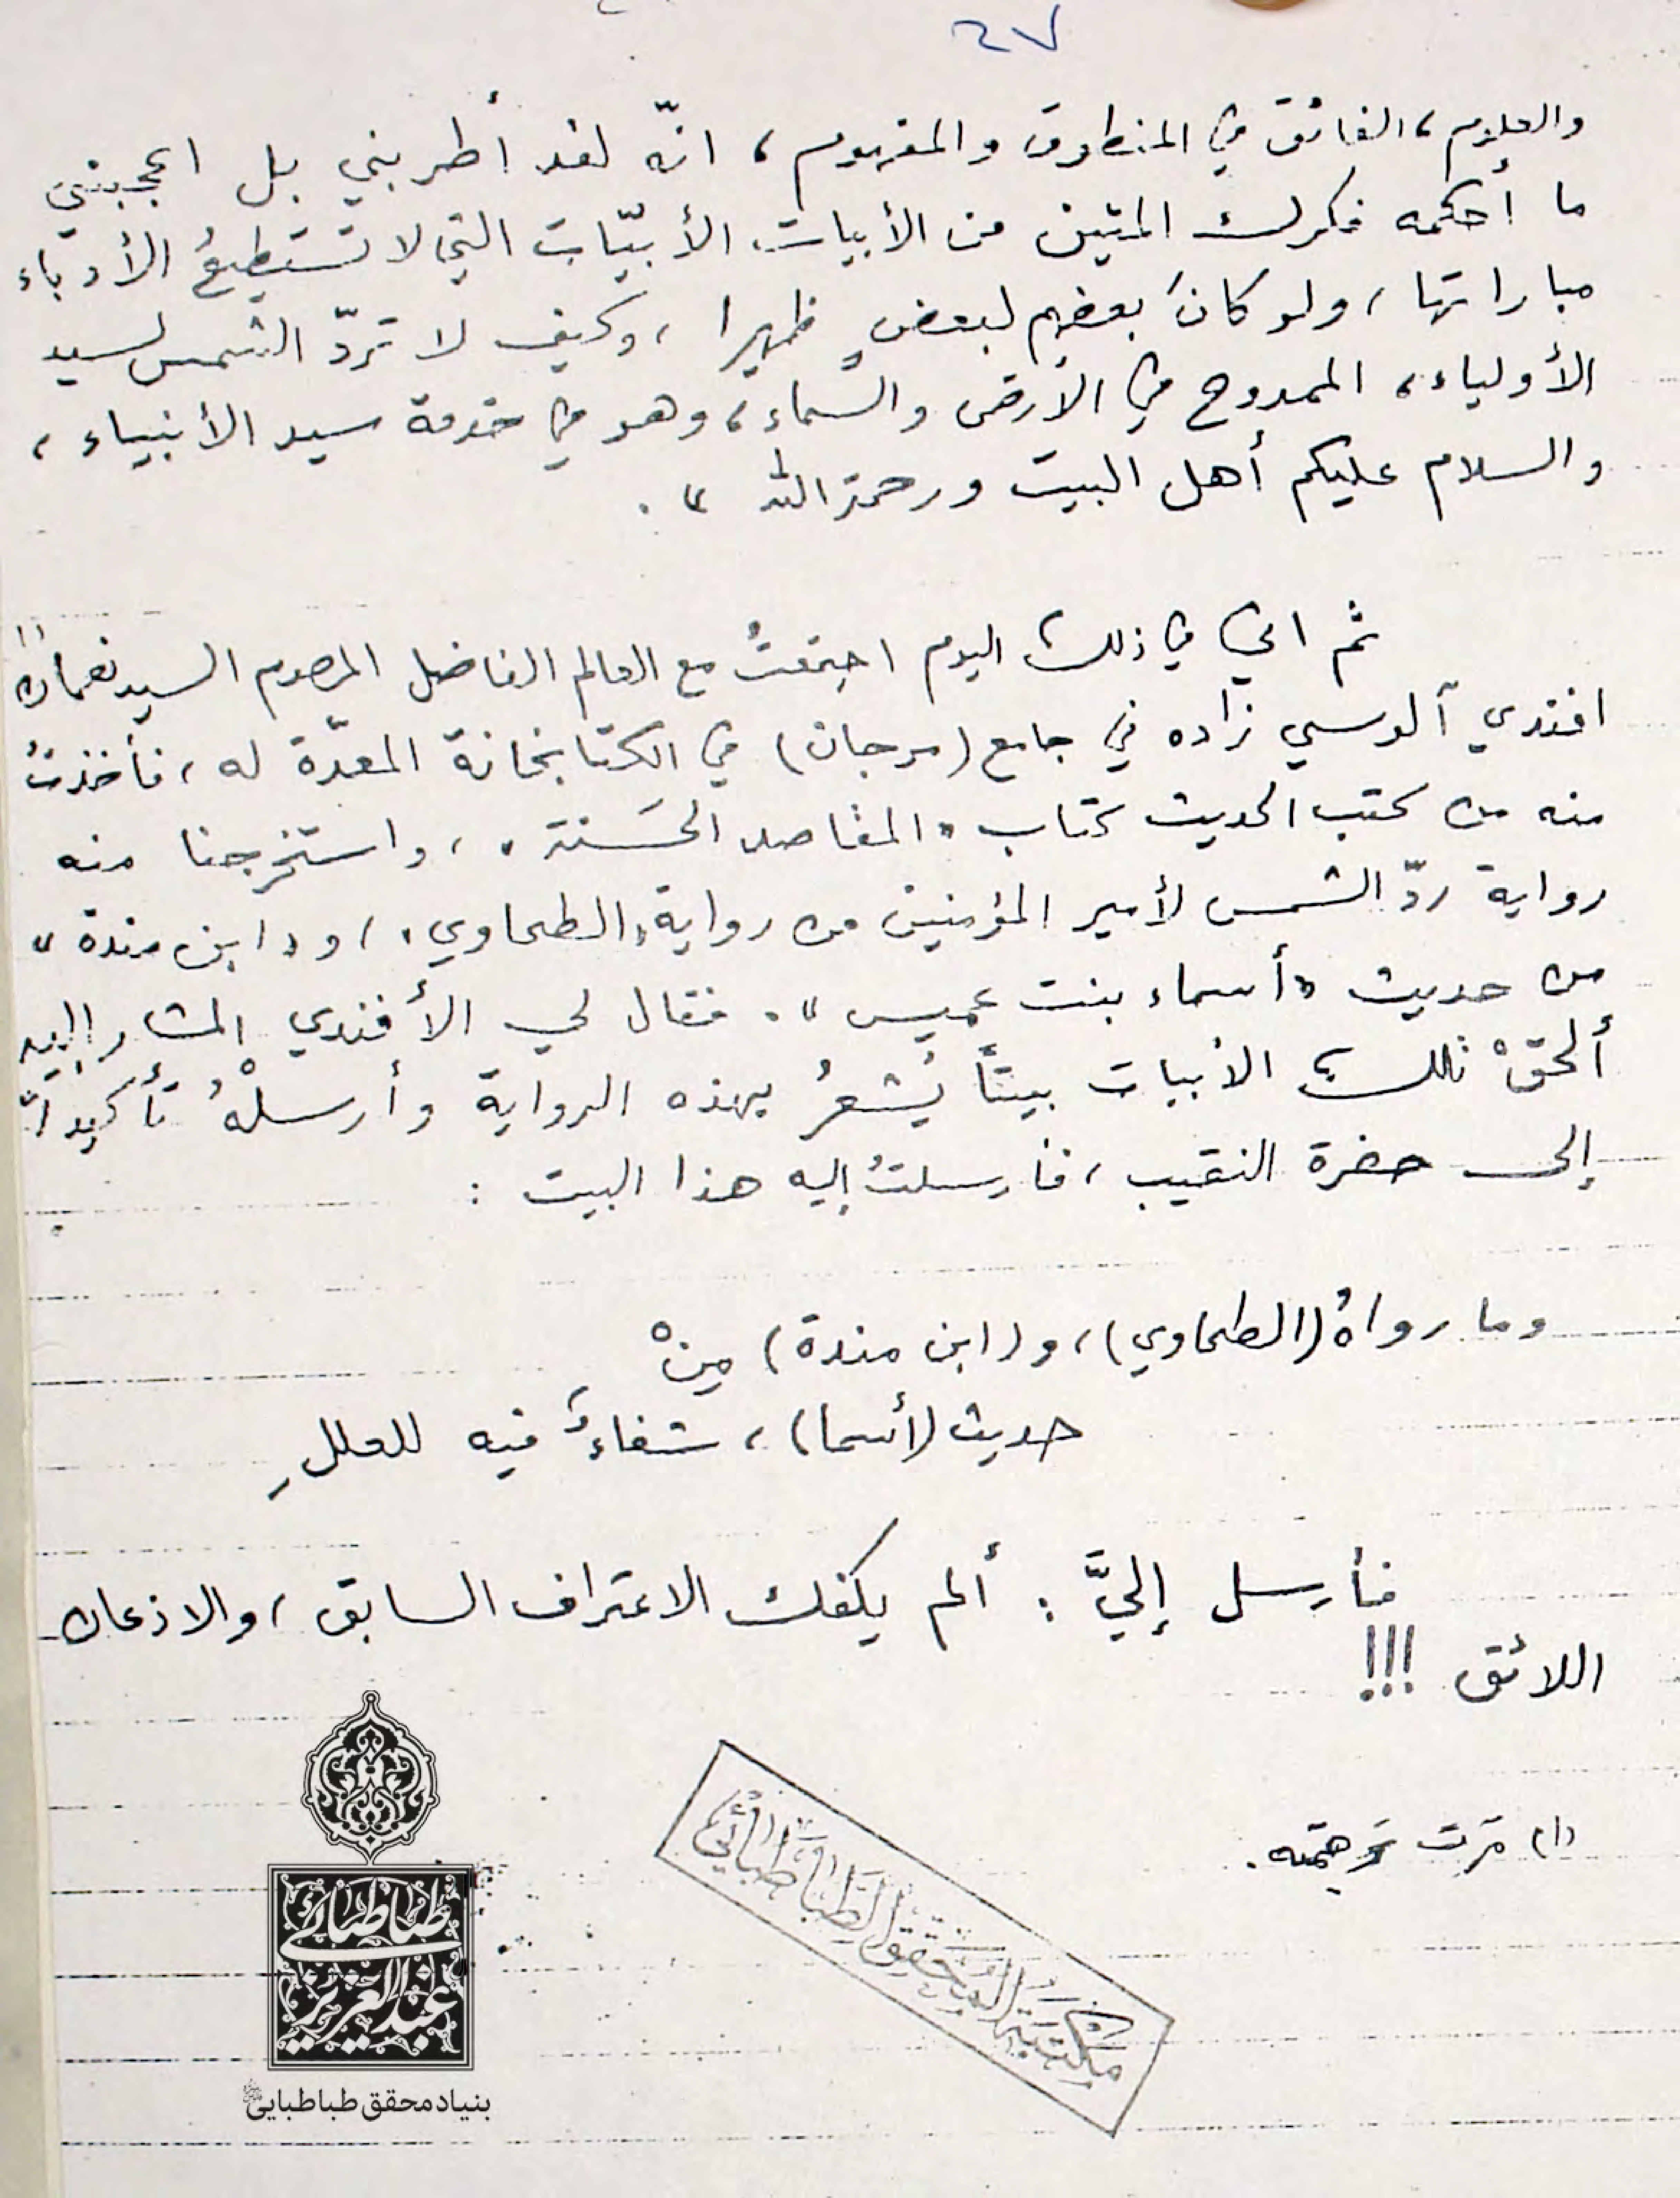 ٤٧
والعلوم، الفائق في المنطوق والمفهوم، انّه لقد أطربني بل اعجبني
ما أحكمه فكرك المتين من الأبيات الأبيّات التي لا تستطيعُ الأدباء
مباراتها، ولو كانَ بعضهم لبعضٍ ظهيرا، وكيف لا تردّ الشمس لسيد
الأولياء، الممدوح في الأرض والسّماء، وهو في خدمة سيد الأنبياء،
والسلام عليكم أهل البيت ورحمة الله ».
ثم اني في ذلك اليوم اجتمعتُ مع العالم الفاضل المرحوم السيد نعمان (١)
افندي آلوسي زاده في جامع (مرجان) في الكتابخانة المعدّة له، فأخذتُ
منه من كتب الحديث كتاب «المقاصد الحَسَنة»، واستخرجنا منه
رواية ردّ الشمس لأمير المؤمنين من رواية «الطحاوي»، و«ابن مندة»
من حديث «أسماء بنت عميس». فقال لي الأفندي المشار إليه
ألحقْ تلك الأبيات بيتاً يُشعرُ بهذه الرواية وأرسلْهُ تأكيداً
إلى حضرة النقيب، فأرسلتُ إليه هذا البيت :
وما رواهُ (الطحاوي)، و(ابن مندة) مِنْ
حديث (أسما)، شفاءٌ فيه للعللِ
فأرسل إليَّ : ألم يكفك الاعتراف السابق، والاذعان
اللائق !!!
(١) مرّت ترجمته.
مكتبة المحقق الطباطبائي
طباطبائی
عبدالعزیز
بنیاد محقق طباطبایی